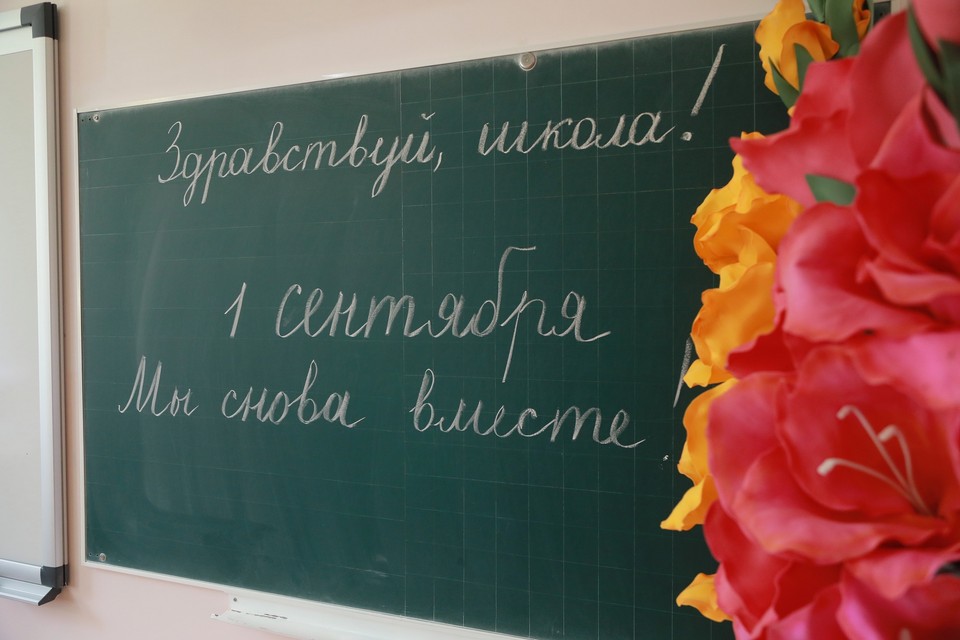 Здравствуй, школа!
1 сентября
Мы снова вместе!